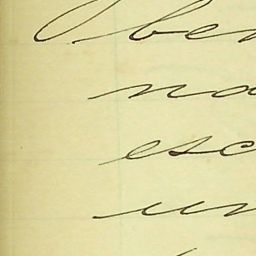 Oben
na
esc
un